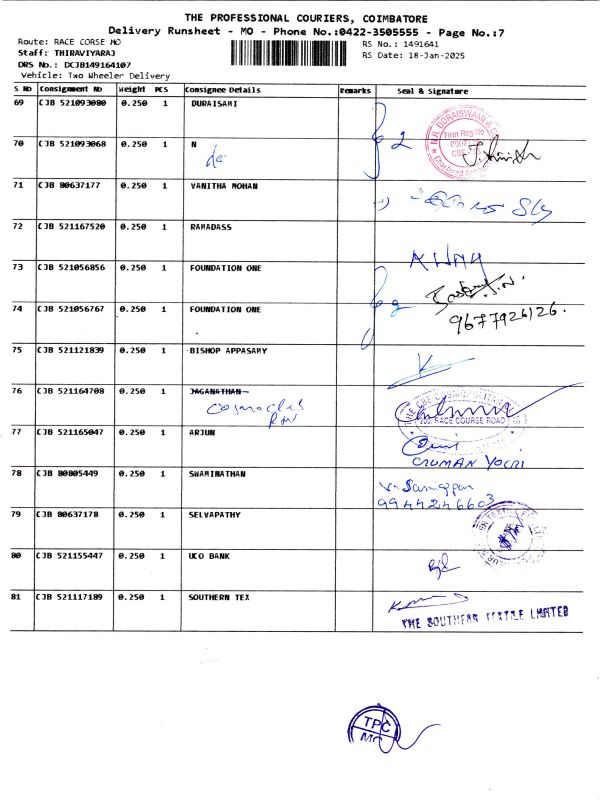 THE PROFESSIONAL COURIERS, COIMBATORE
Delivery Runsheet - MO - Phone No.:0422-3505555 - Page No.:7
Route: RACE CORSE MO
RS No.: 1491641
Staff: THIRAVIYARAJ
RS Date: 18-Jan-2025
DRS No.: DCJB149164107
Vehicle: Two Wheeler Delivery
S No Consignment No Weight PCS Consignee Details Remarks Seal & Signature
69 CJB 521093080 0.250 1 DURAISAMI
70 CJB 521093068 0.250 1 N
71 CJB 80637177 0.250 1 VANITHA MOHAN
72 CJB 521167520 0.250 1 RAMADASS
73 CJB 521056856 0.250 1 FOUNDATION ONE
74 CJB 521056767 0.250 1 FOUNDATION ONE
9677926126.
75 CJB 521121839 0.250 1 BISHOP APPASAMY
76 CJB 521164708 0.250 1 JAGANATHAN
RACE COURSE ROAD
77 CJB 521165047 0.250 1 ARJUN
78 CJB 80805449 0.250 1 SWAMINATHAN
9944246603
79 CJB 80637178 0.250 1 SELVAPATHY
80 CJB 521155447 0.250 1 UCO BANK
81 CJB 521117189 0.250 1 SOUTHERN TEX
THE SOUTHERN TEXTILE LIMITED
TPC
MO